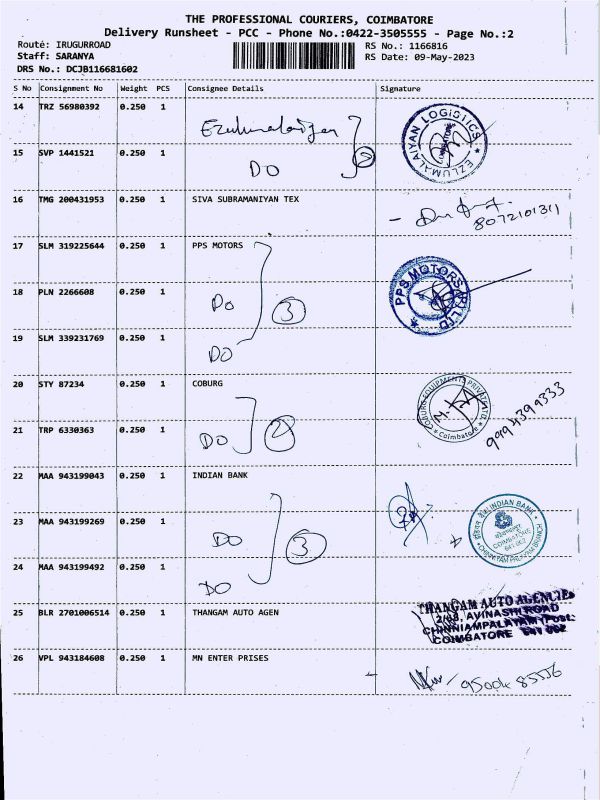 THE PROFESSIONAL COURIERS, COIMBATORE
Delivery Runsheet - PCC - Phone No.:0422-3505555 - Page No.:2
Route: IRUGURROAD RS No.: 1166816
Staff: SARANYA RS Date: 09-May-2023
DRS No.: DCJB116681602
S No Consignment No Weight PCS Consignee Details Signature
14 TRZ 56980392 0.250 1
EZLUMALAIYAN LOGISTICS
15 SVP 1441521 0.250 1
DO 2
16 TMG 200431953 0.250 1 SIVA SUBRAMANIYAN TEX
8072101311
17 SLM 319225644 0.250 1 PPS MOTORS
18 PLN 2266608 0.250 1
DO 3
PPS MOTORS (P) LTD
19 SLM 339231769 0.250 1
DO
20 STY 87234 0.250 1 COBURG
COBURG EQUIPMENTS PRIVATE LTD. Coimbatore
9994399333
21 TRP 6330363 0.250 1
DO 2
22 MAA 943199043 0.250 1 INDIAN BANK
23 MAA 943199269 0.250 1
DO 3
INDIAN BANK
COIMBATORE
641 062
CHINNIAM PALAYAM BRANCH
24 MAA 943199492 0.250 1
DO
25 BLR 2701006514 0.250 1 THANGAM AUTO AGEN
THANGAM AUTO AGENCIES
AVINASHI ROAD
CHINNIAMPALAYAM (Post)
COIMBATORE 641 062
26 VPL 943184608 0.250 1 MN ENTER PRISES
95004 85556